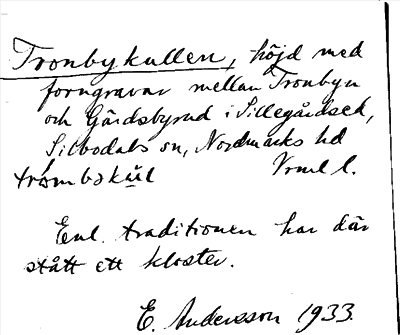 Tronbykullen, höjd med
forngravar mellan Tronbyn
och Gårdsbyrud i Sillegårdsed,
Silbodals sn, Nordmarks hd
Vrml l.
Enl. traditionen har där
stått ett kloster.
E. Andersson 1933.